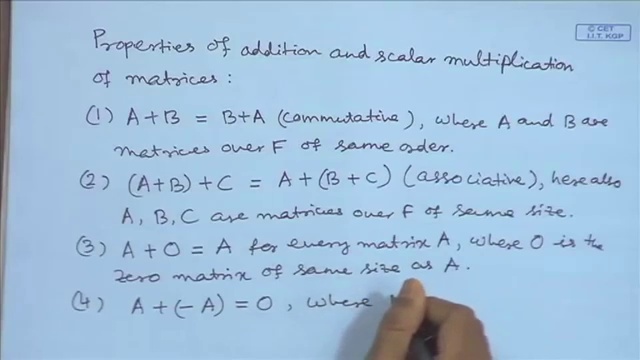 © CET
I.I.T. KGP
Properties of addition and scalar multiplication
of matrices :
(1) A+B = B+A (commutative), where A and B are
matrices over F of same order.
(2) (A+B)+C = A+(B+C) (associative), here also
A, B, C are matrices over F of same size.
(3) A+O = A for every matrix A, where O is the
zero matrix of same size as A.
(4) A+(-A) = O, where